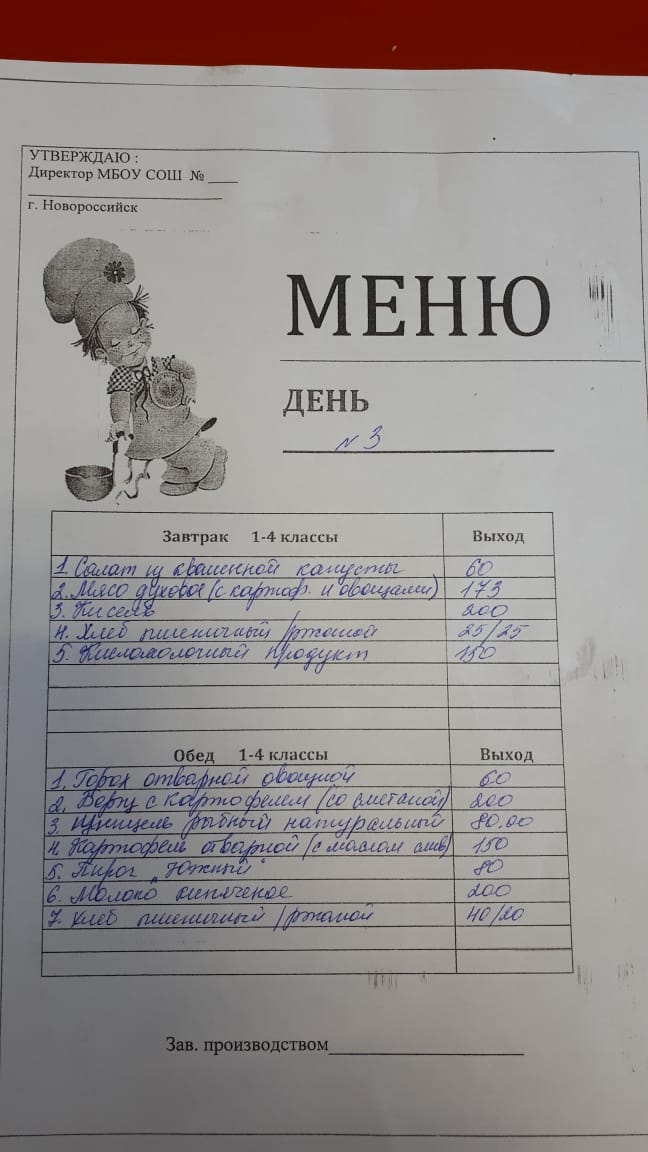 УТВЕРЖДАЮ :
Директор МБОУ СОШ № ____
г. Новороссийск
МЕНЮ
ДЕНЬ
№ 3
Завтрак 1-4 классы Выход
1. Салат из квашенной капусты 60
2. Мясо духовое (с картоф. и овощами) 173
3. Кисель 200
4. Хлеб пшеничный/ржаной 25/25
5. Кисломолочный продукт 150
Обед 1-4 классы Выход
1. Горох отварной овощной 60
2. Борщ с картофелем (со сметаной) 200
3. Шницель рыбный натуральный 80.00
4. Картофель отварной (с маслом слив) 150
5. Пирог "Южный" 80
6. Молоко кипяченое 200
7. Хлеб пшеничный/ржаной 40/20
Зав. производством____________________